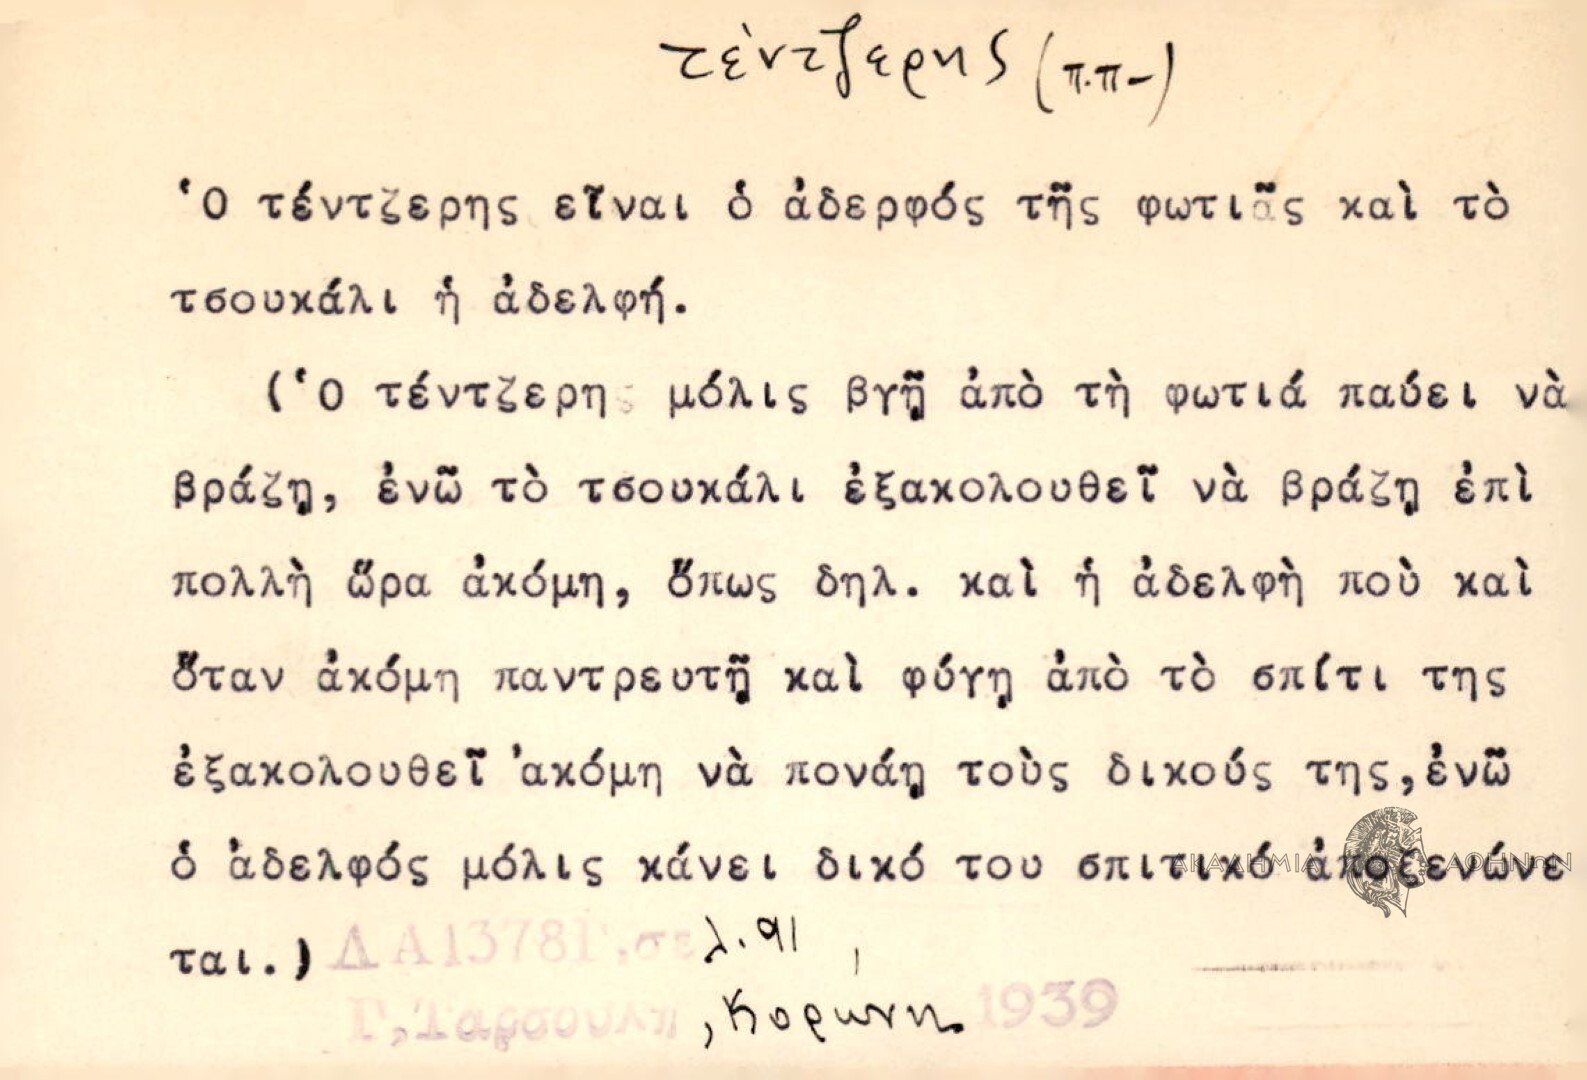 τέντζερης (π.π-)
Ὁ τέντζερης εἶναι ὁ ἀδερφός τῆς φωτιᾶς καὶ τὸ
τσουκάλι ἡ ἀδελφή.
(Ὁ τέντζερης μόλις βγῇ ἀπὸ τὴ φωτιά παύει νὰ
βράζῃ, ἐνῶ τὸ τσουκάλι ἐξακολουθεῖ νὰ βράζῃ ἐπὶ
πολλὴ ὥρα ἀκόμη, ὅπως δηλ. καὶ ἡ ἀδελφὴ ποὺ καὶ
ὅταν ἀκόμη παντρευτῇ καὶ φύγῃ ἀπὸ τὸ σπίτι της
ἐξακολουθεῖ ἀκόμη νὰ πονάῃ τοὺς δικούς της, ἐνῶ
ὁ ἀδελφός μόλις κάνει δικό του σπιτικό ἀποξενώνε
ται.) ΔΑ 1378Γ, σελ. 91,
Γ, Ταρσούλη, Κορώνη 1939
ΑΚΑΔΗΜΙΑ ΑΘΗΝΩΝ